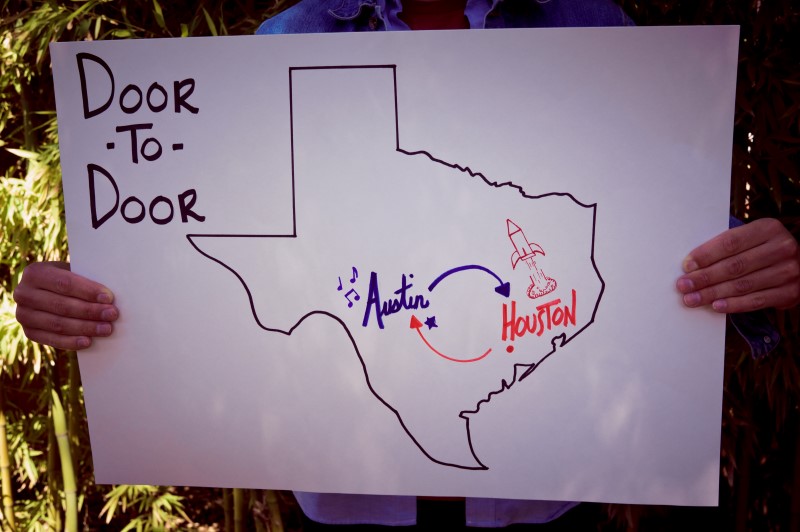 DOOR
-TO-
DOOR
Austin
HOUSTON